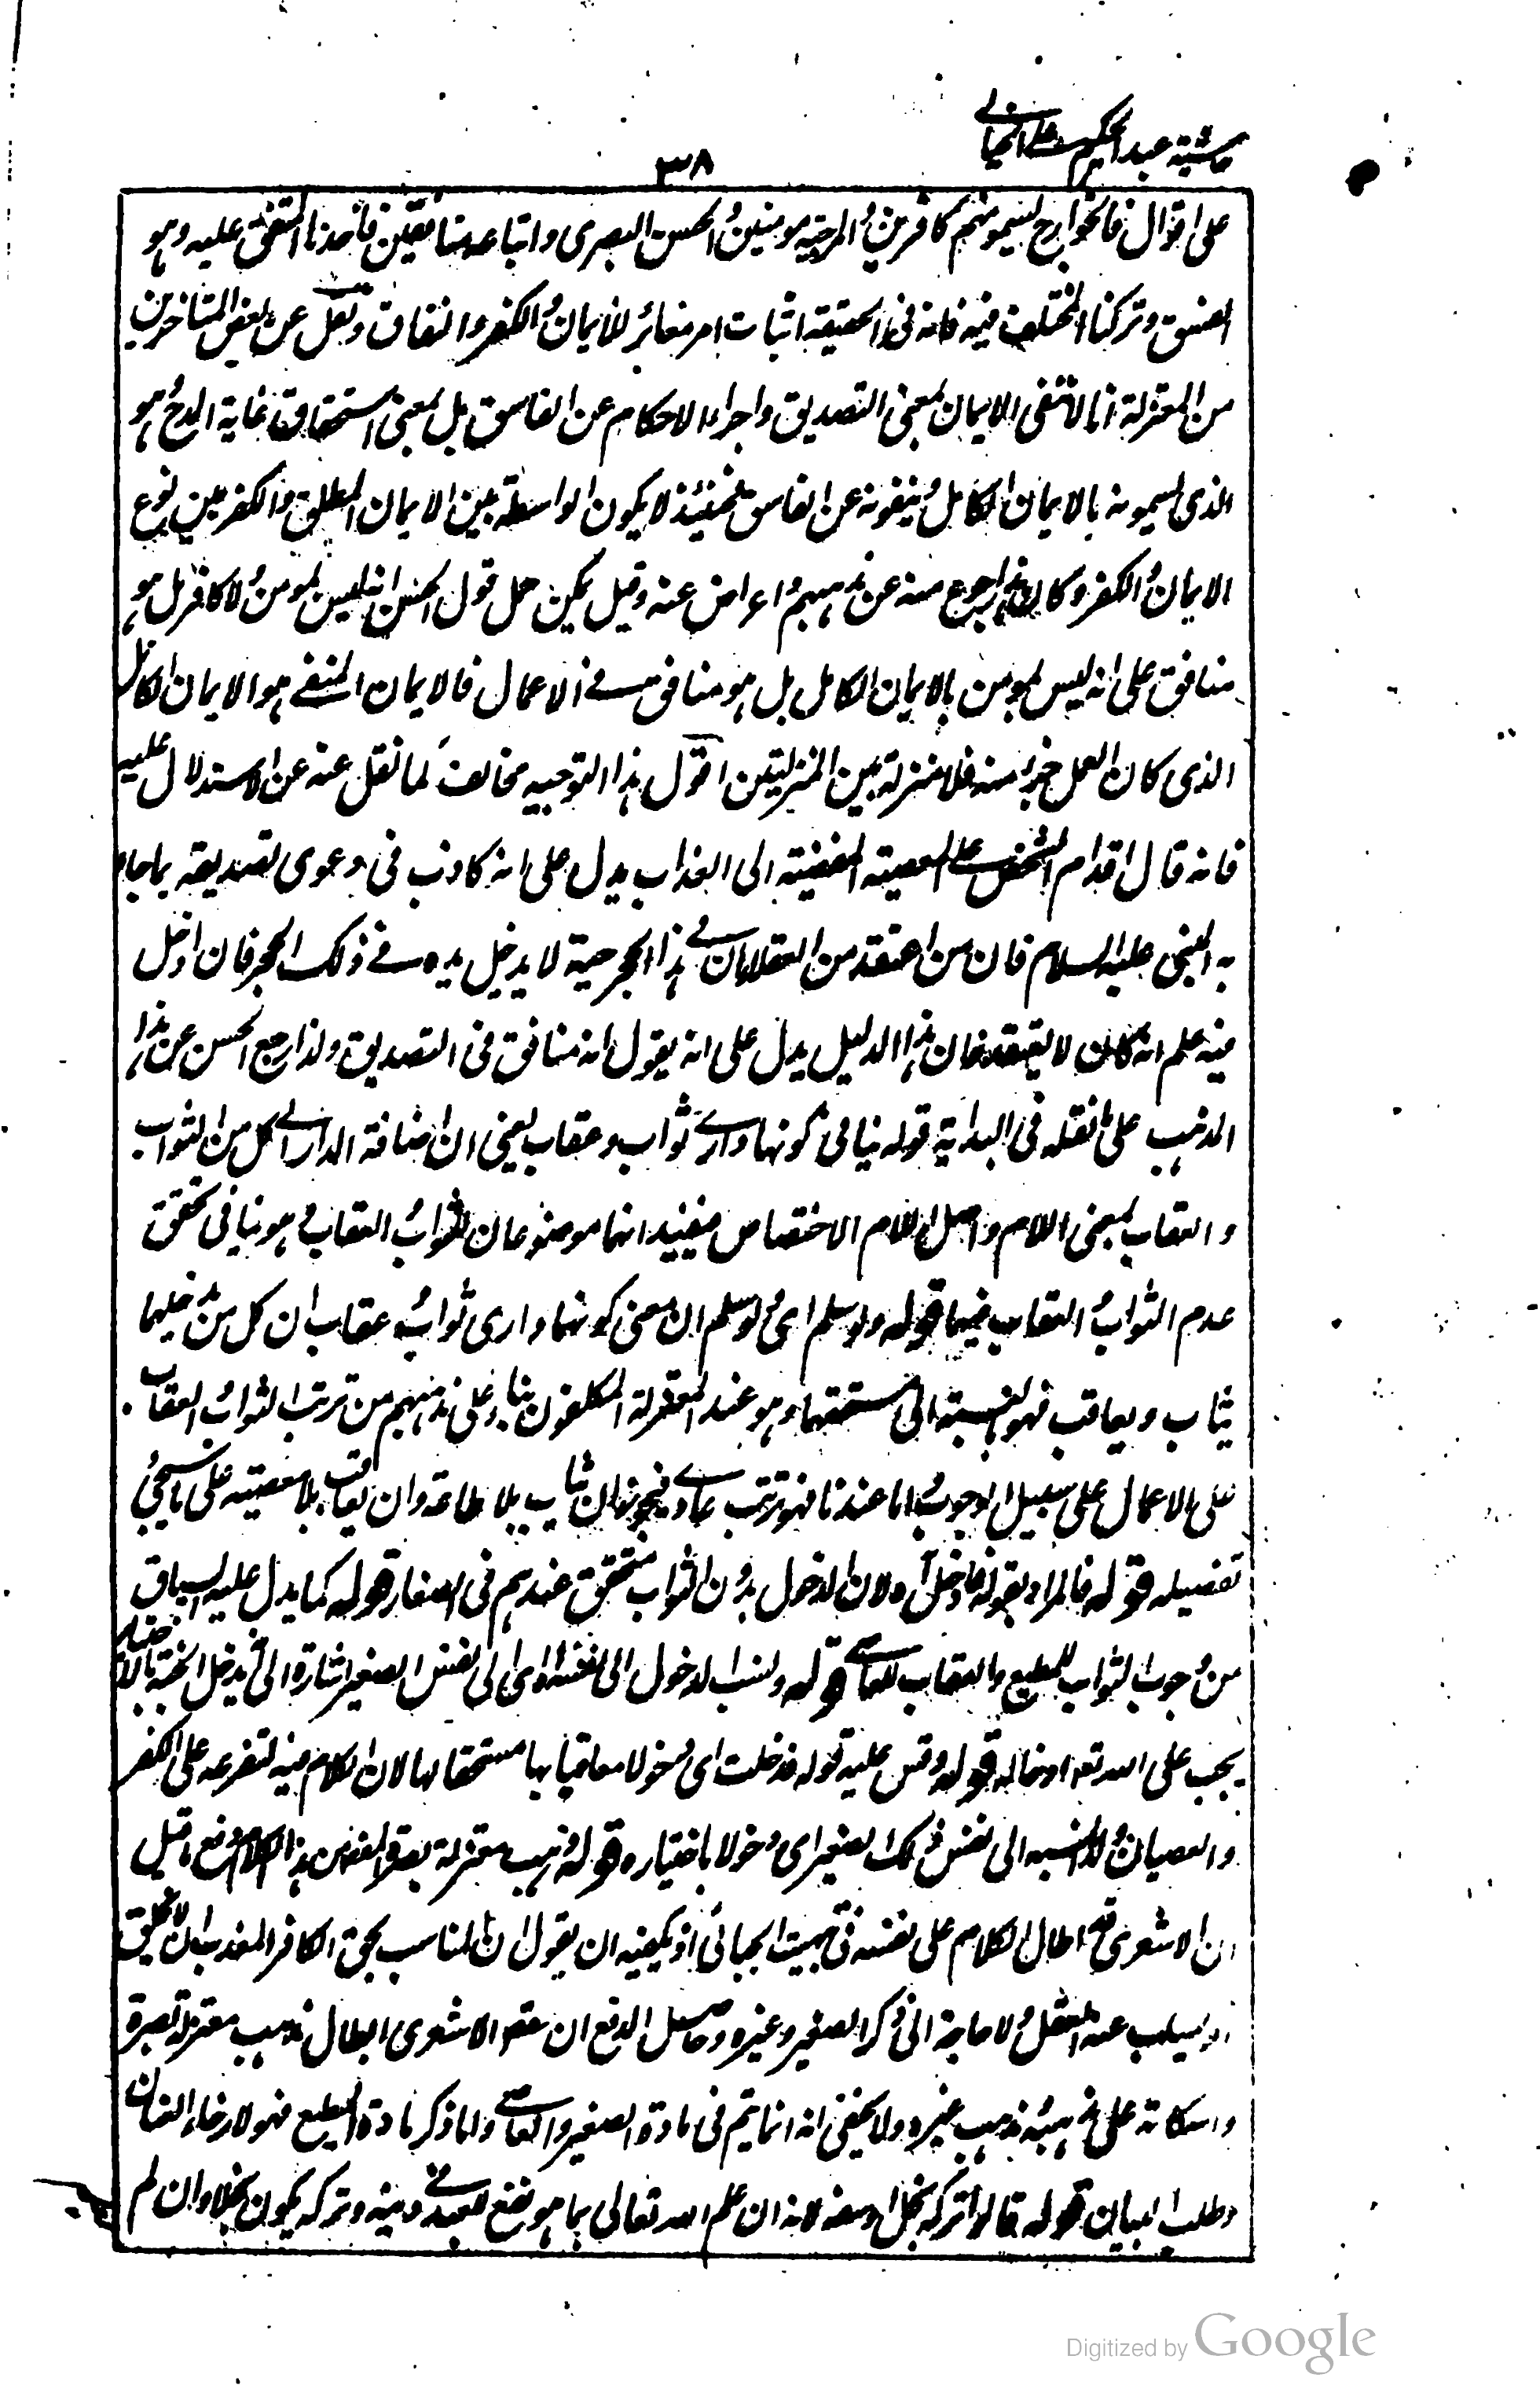 حاشیة عبد الحکیم علی الخیالی
۳۸
علی اقوال فالخوارج یسمونهم کافرین والمرجیة مومنین والحسن البصری واتباعه منافقین فاخذنا المتفق علیه وهو
الفسق وترکنا المختلف فیه فانه فی الحقیقة اثبات امر مغائر للایمان والکفر والنفاق ونقل عن بعض المتاخرین
من المعتزلة انا لا ننفی الایمان بمعنی التصدیق واجراء الاحکام عن الفاسق بل بمعنی استحقاق غایة المدح وهو
الذی یسمونه بالایمان الکامل وینفونه عن الفاسق فحینئذ لا یکون الواسطة بین الایمان المطلق والکفر بین نوع
الایمان والکفر وکان هذا رجوع منه عن مذهبهم واعراض عنه وقیل یمکن حمل قول الحسن انه لیس بمومن ولا کافر بل هو
منافق علی انه لیس بمومن بالایمان الکامل بل هو منافق فی الاعمال فالایمان المنفی هو الایمان الکامل
الذی کان العمل جزءا منه فلا منزلة بین المنزلیتین اقول هذا التوجیه مخالف لما نقل عنه عن الاستدلال علیه
فانه قال اقدام الشخص علی المعصیة المفضیة الی العذاب یدل علی انه کاذب فی دعوی تصدیقه بما جاء
به النبی علیه السلام فان من اعتقد من العقلاء ان فی هذا الجحر حیة لا یدخل یده فی ذلک الجحر فان ادخل
فیه علم انه کان لا یعتقد فان هذا الدلیل یدل علی انه یقول انه منافق فی التصدیق ولذا رجع الحسن عن هذا
المذهب علی ما نقله فی البدایة قوله ینافی کونها داری ثواب وعقاب یعنی ان اضافة الدار الی کل من الثواب
والعقاب بمعنی اللام واصل اللام الاختصاص فیفید انهما موضوعان للثواب والعقاب وهو ینافی تحقق
عدم الثواب والعقاب فیهما قوله ولو سلم ای ولو سلم ان معنی کونهما داری ثواب وعقاب ان کل من یدخلهما
یثاب ویعاقب فهو بالنسبة الی مستحقهما وهو عند المعتزلة المکلفون بناء علی مذهبهم من ترتب الثواب والعقاب
علی الاعمال علی سبیل الوجوب واما عندنا فهو ترتب عادی فیجوز ان یثاب بلا طاعة وان یعاقب بلا معصیة علی ما سیجئ
تفصیله قوله فالمراد بقوله فادخل آه لان الدخول بدون الثواب متحقق عندهم فی الصغار قوله کما یدل علیه السیاق
من وجوب الثواب للمطیع والعقاب للعاصی قوله ونسب الدخول الی نفسه ای الی نفس الصغیر اشارة الی من یدخل الجنة بالاختیار
یجب علی الله تع ادخاله قوله وقس علیه قوله فدخلت ای دخولا معاقبا بها مستحقا لها لان الکلام فیه لتفرعه علی الکفر
والعصیان ولذا نسبه الی نفس ذلک الصغیر ای دخولا باختیاره قوله مذهب معتزلة بصرة المقصود من هذا الکلام دفع ما قیل
ان الاشعری اطال الکلام علی نفسه فی تبکیت الجبائی اذ یکفیه ان یقول ان المناسب بحق الکافر المعذب ان لا یخلق
او یسلب عنه العقل ولا حاجة الی ذکر الصغیر وغیره وحاصل الدفع ان مقصود الاشعری ابطال مذهب معتزلة بصرة
واسکاته علی مذهبه ومذهب غیره ولا یخفی انه انما یتم فی مادة الصغیر والعاصی واما ذکر مادة المطیع فهو لارخاء العنان
وطلب البیان قوله قالوا ترکه بخل او سفه لانه ان علم الله تعالی بما هو نفع للعبد فی دینه وترکه یکون بخلا وان لم
Digitized by Google